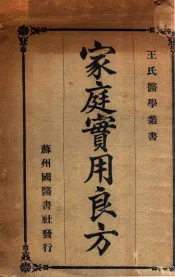 王氏醫學叢書
家庭實用良方
蘇州國醫書社發行